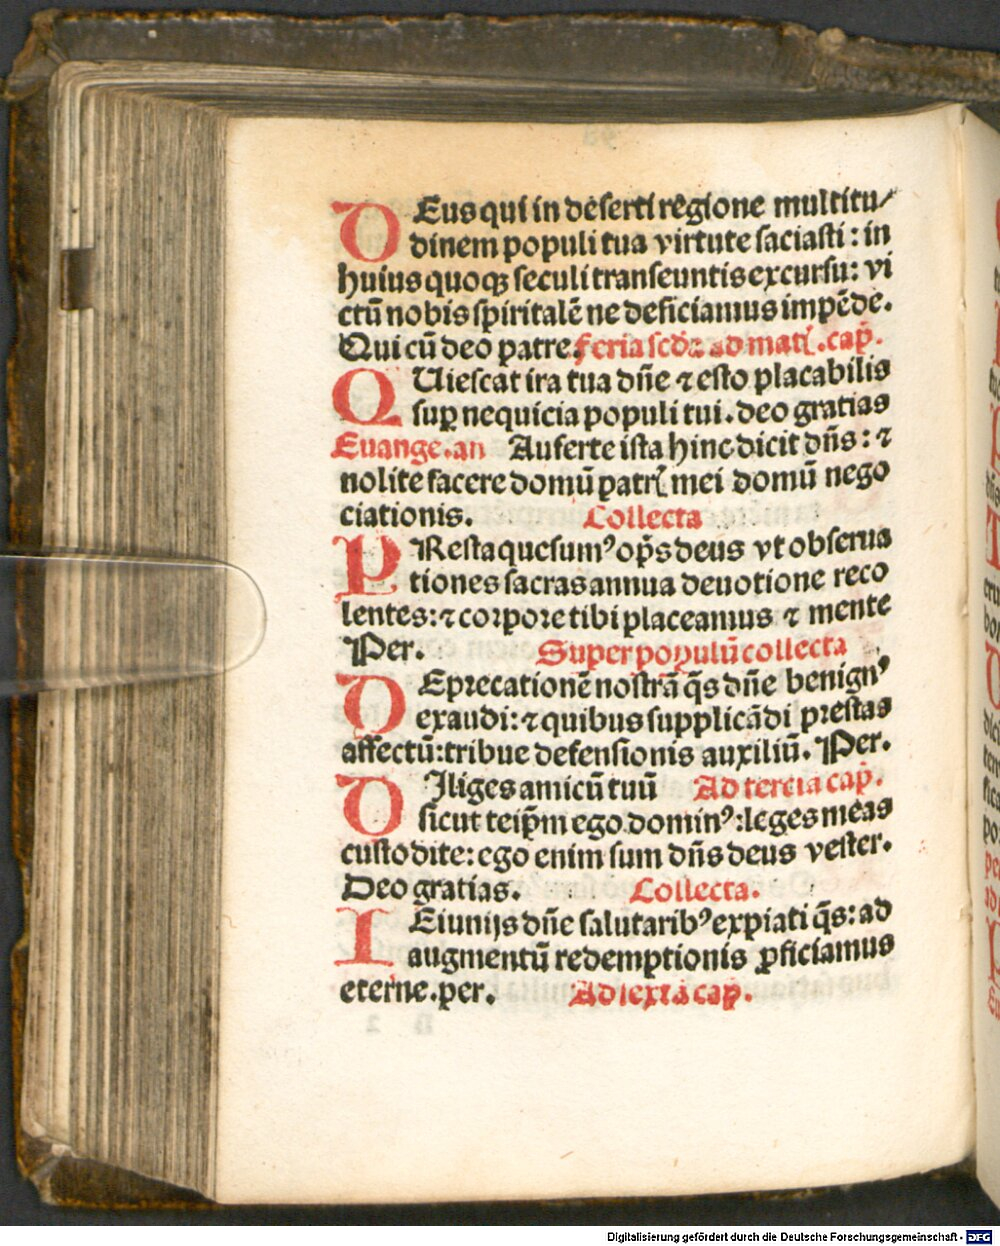 DEus qui in deserti regione multitu⸗
dinem populi tua virtute saciasti: in
huius quoqꝫ seculi transeuntis excursu: vi
ctū nobis spiritalē ne deficiamus impēde.
Qui cū deo patre. feria scḋa ad mati. cap̄.
QUiescat ira tua dn̄e ⁊ esto placabilis
suꝑ nequicia populi tui. deo gratias
Euange. an Auferte ista hinc dicit dn̄s: ⁊
nolite facere domū patri mei domū nego
ciationis. Collecta
PResta quesumꝰ op̄s deus vt obserua
tiones sacras annua deuotione reco
lentes: ⁊ corpore tibi placeamus ⁊ mente
Per. Super populū collecta
DEprecationē nostrā q̄s dn̄e benignꝰ
exaudi: ⁊ quibus supplicādi prestas
affectū: tribue defensionis auxiliū. Per.
DIliges amicū tuū Ad tercia cap̄.
sicut teip̄m ego dominꝰ: leges meas
custodite: ego enim sum dn̄s deus vester.
Deo gratias. Collecta.
IEiunijs dn̄e salutaribꝰ expiati q̄s: ad
augmentū redemptionis ꝓficiamus
eterne. per. Ad sexta cap̄.
Digitalisierung gefördert durch die Deutsche Forschungsgemeinschaft - DFG